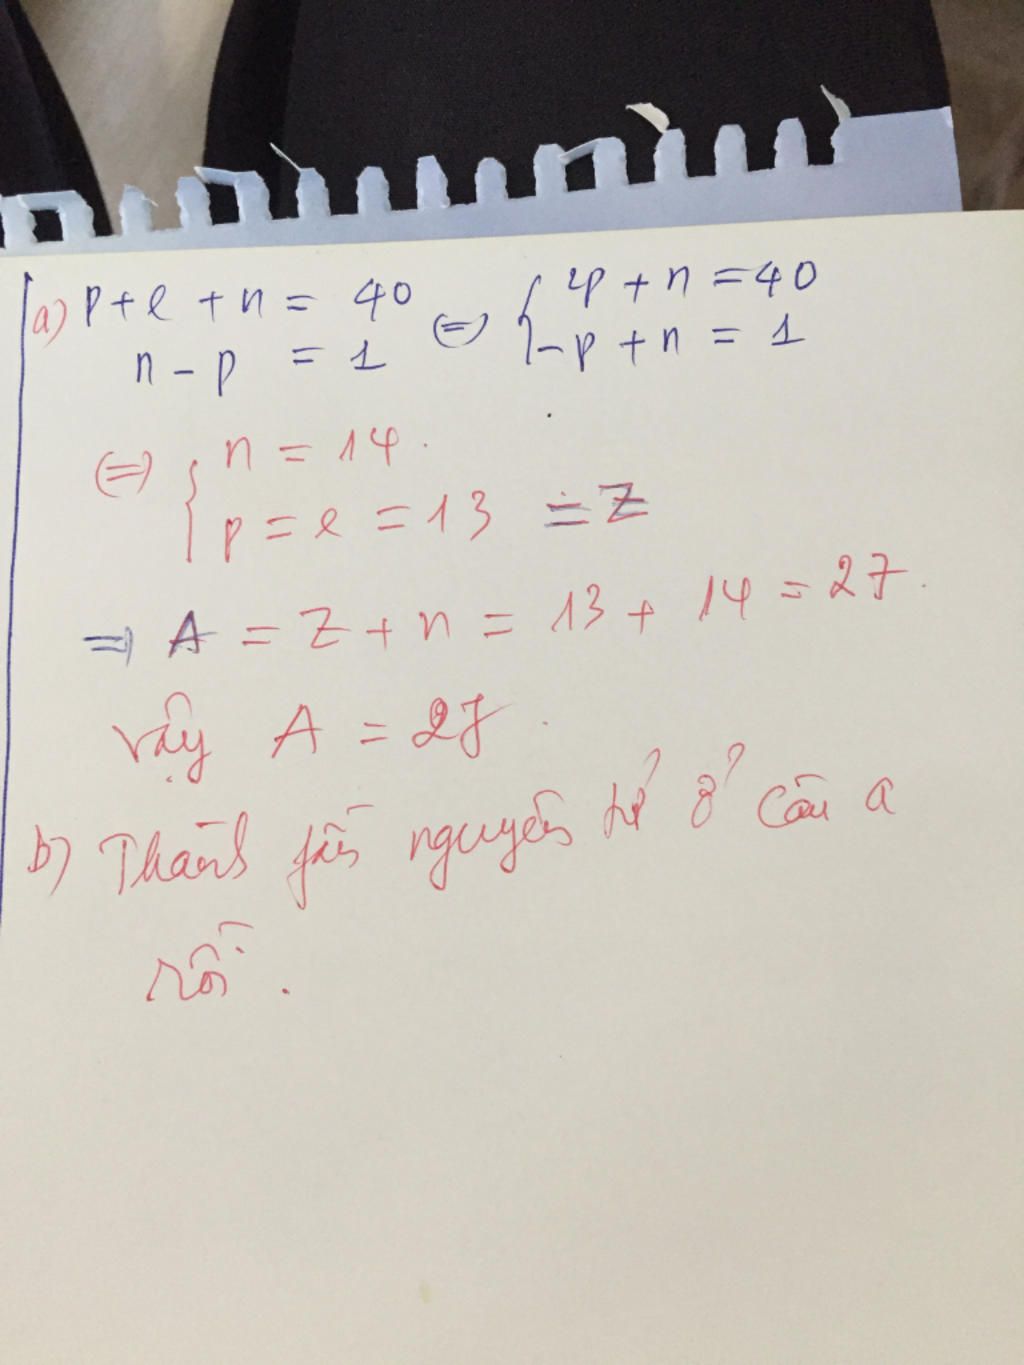 a) p + e + n = 40 (=) { 2p + n = 40
n - p = 1 -p + n = 1
(=) { n = 14.
p = e = 13 = Z
=) A = Z + n = 13 + 14 = 27.
vậy A = 27.
b) Thành phần nguyên tử ở câu a
rồi.